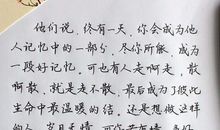 他们说,终有一天,你会成为他
人记忆中的一部分,尽你所能,成
为一段好记忆。可也有人走啊走,散
啊散,就是走不散,最后成为了彼此
生命中最温暖的结。还是想做这样
的人,岁月无情